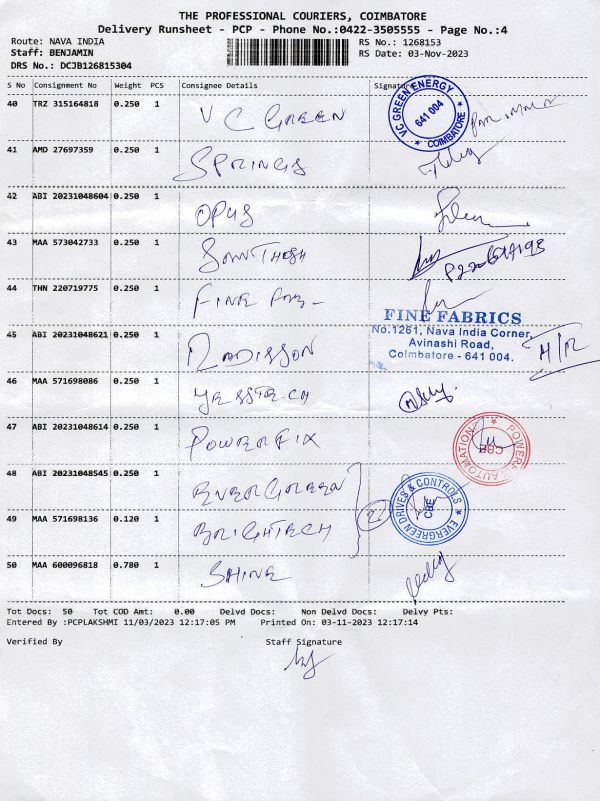 THE PROFESSIONAL COURIERS, COIMBATORE
Delivery Runsheet - PCP - Phone No.:0422-3505555 - Page No.:4
Route: NAVA INDIA RS No.: 1268153
Staff: BENJAMIN RS Date: 03-Nov-2023
DRS No.: DCJB126815304
S No Consignment No Weight PCS Consignee Details Signature
40 TRZ 315164818 0.250 1 VC GREEN
VC GREEN ENERGY
641 004
COIMBATORE
41 AMD 27697359 0.250 1 SPRINGS
42 ABI 20231048604 0.250 1 OPUS
43 MAA 573042733 0.250 1
44 THN 220719775 0.250 1 FINE FAB-
FINE FABRICS
No.1261, Nava India Corner,
Avinashi Road,
Coimbatore - 641 004.
45 ABI 20231048621 0.250 1 RADISSON
46 MAA 571698086 0.250 1
47 ABI 20231048614 0.250 1 POWERFIX
AUTOMATION
CBE
48 ABI 20231048545 0.250 1 EVERGREEN
2
EVERGREEN DRIVES & CONTROLS
CBE
49 MAA 571698136 0.120 1 BRIGHTECH
50 MAA 600096818 0.780 1 SHINE
Tot Docs: 50 Tot COD Amt: 0.00 Delvd Docs: Non Delvd Docs: Delvy Pts:
Entered By :PCPLAKSHMI 11/03/2023 12:17:05 PM Printed On: 03-11-2023 12:17:14
Verified By Staff Signature